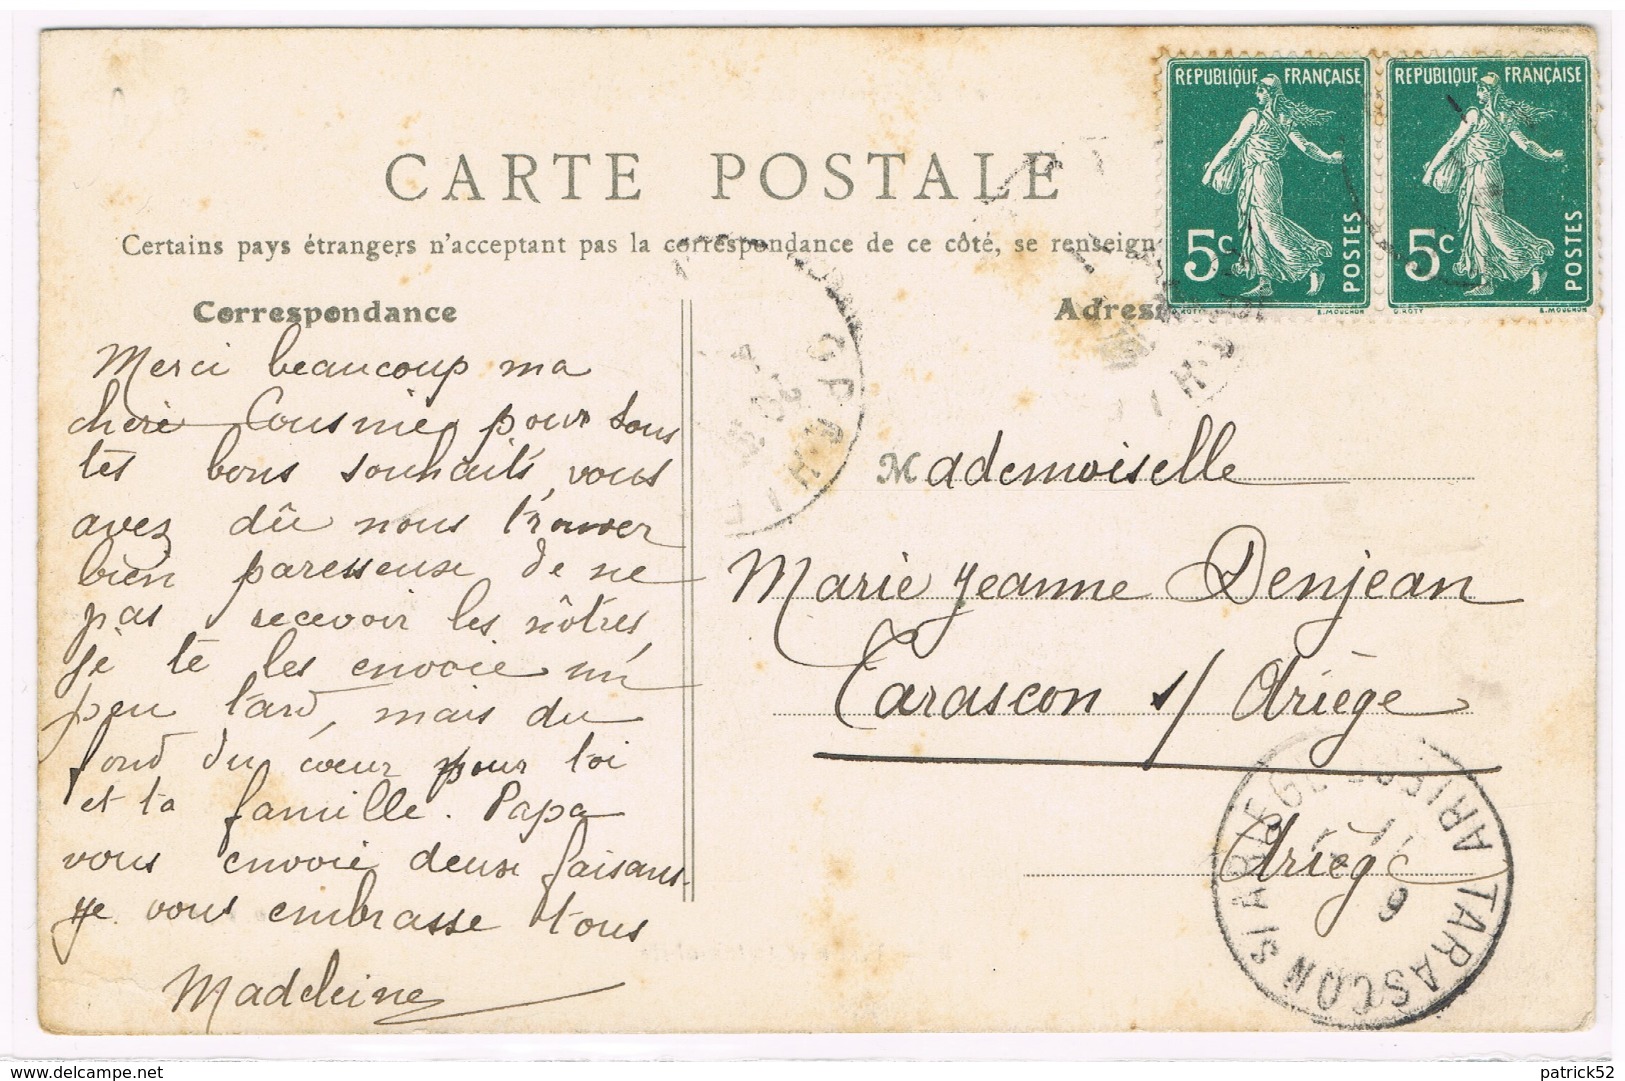 CARTE POSTALE
Certains pays étrangers n'acceptant pas la correspondance de ce côté, se renseign
Correspondance
Merci beaucoup ma
chère Cousine, pour tous
tes bons souhaits, vous
avez dû nous trouver
bien paresseuse de ne
pas recevoir les nôtres
je te les envoie un
peu tard, mais du
fond du cœur pour toi
et ta famille. Papa
vous envoie deux faisans.
je vous embrasse tous
Madeleine
REPUBLIQUE FRANÇAISE
5c POSTES
O. ROTY E. MOUCHON
REPUBLIQUE FRANÇAISE
5c POSTES
O. ROTY E. MOUCHON
Adres
Mademoiselle
Marie Jeanne Denjean
Tarascon s/ Ariège
Ariège
TARASCON S/ ARIEGE
ARIEGE
delcampe.net
patrick52